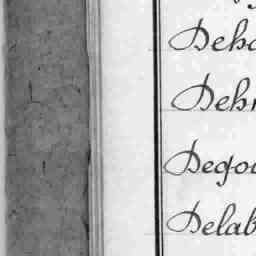 Deho
Dehn
Dego
Delab